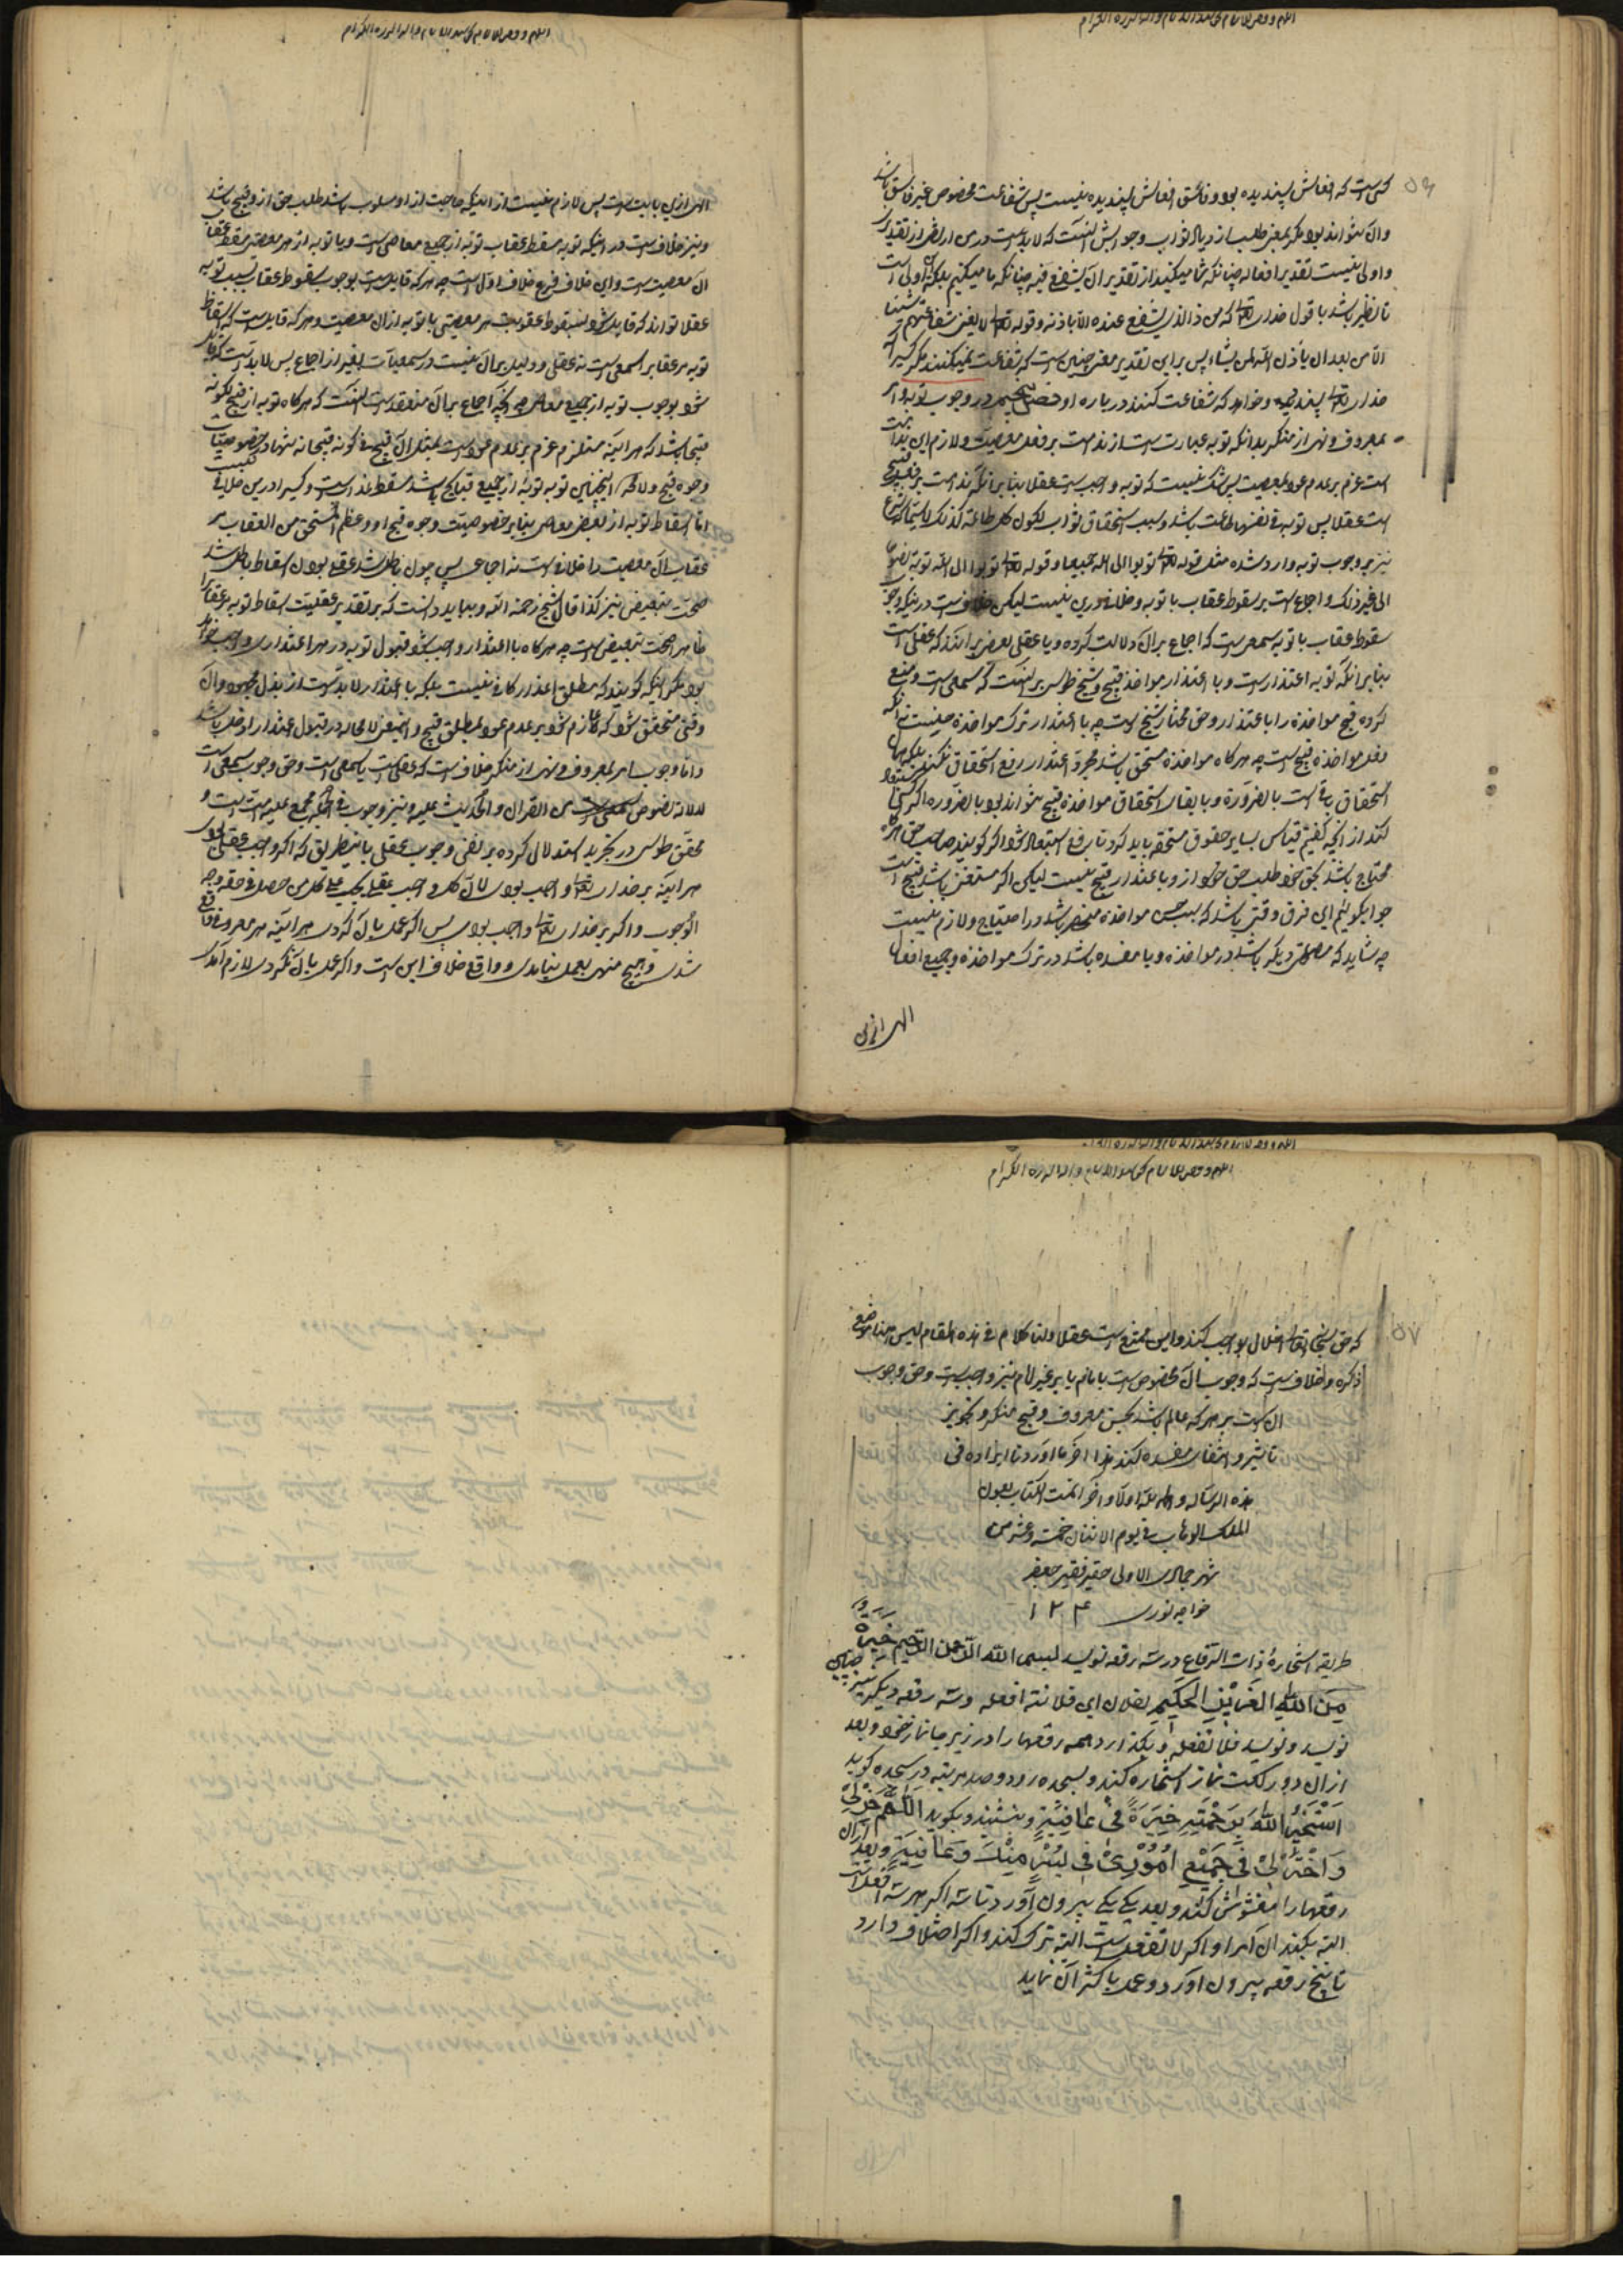 ۵۶
کسی است که افعالش پسندیده بود و فاسق افعالش پسندیده نیست پس شفاعت مخصوص غیر فاسق باشد
و آن نتواند بود مگر بمعنی طلب از دیاد ثواب و جوابش آنست که لا بد است درین
و اولی نیست تقدیر افعاله چنانکه شما میکنید از تقدیر ان یشفع فیه چنانکه ما میکنیم بلکه اولی است
تا نظیر باشد با قول خدای تعالی که من ذا الذی یشفع عنده الا باذنه و قوله تعالی لا یغنی شفاعتهم شیئا
الا من بعد ان یأذن الله لمن یشاء پس براین تقدیر معنی چنین است که شفاعت نمیکنند مگر کسی را که
خدای تعالی پسندیده و خواهد که شفاعت کنند در باره او فصل پنجم در وجوب توبه و امر
بمعروف و نهی از منکر بدانکه توبه عبارتست از ندامت بر فعل معصیت و لازم این ندامت
است عزم بر عدم عود بمعصیت پس شک نیست که توبه واجب است عقلا بنابر آنکه ندامت بر فعل قبیح
است عقلا پس توبه فی نفسها طاعت باشد و سبب استحقاق ثواب لکون کل طاعة کذلک
نیز بر وجوب توبه وارد شده مثل قوله تعالی توبوا الی الله جمیعا و قوله تعالی توبوا الی الله توبة نصوحا
الی غیر ذلک و اجماع است بر سقوط عقاب با توبه و خلاف درین نیست لیکن خلافست در اینکه وجوب
سقوط عقاب با توبه سمعی است که اجماع بر آن دلالت کرده و یا عقلی بعضی برانند که عقلی است
بنابر آنکه توبه اعتذار است و با اعتذار مواخذه قبیح و شیخ طوسی بر آنست که سمعی است و منع
کرده قبح مواخذه را با اعتذار و حق مختار شیخ است چه با اعتذار ترک مواخذه حسنست نه آنکه
فعل مواخذه قبیح است چه هر گاه مواخذه مستحق باشد مجرد اعتذار رفع استحقاق نکند بلکه
استحقاق باقی است بالضرورة و با بقاء استحقاق مواخذه قبیح نتواند بود بالضروره اگر کسی استبعاد
کند از آنچه گفتیم قیاس بسایر حقوق مستحقه باید کرد تا رفع استبعاد شود اگر گویند صاحب حق هر گاه
محتاج باشد بحق خود طلب حق خود از و با اعتذار قبیح نیست لیکن اگر مستغنی باشد قبیح است
جواب گوئیم این فرق وقتی باشد که سبب حسن مواخذه منحصر باشد در احتیاج و لازم نیست
چه شاید که مصلحتی دیگر باشد در مواخذه و یا مفسده باشد در ترک مواخذه و جمیع افعال
الهی ازین
الهی ازین بابتست پس لازم نیست از اینکه حاجت ازو مسلوب باشد طلب حق ازو قبیح باشد
و نیز خلاف است در اینکه توبه مسقط عقاب توبه از جمیع معاصی است و یا توبه از هر معصیتی مسقط عقاب
آن معصیت است و این خلاف فرع خلاف اول است چه هر که قایل است بوجوب سقوط عقاب بسبب توبه
عقلا تواند که قایل شود بسقوط عقوبت هر معصیتی با توبه از آن معصیت و هر که قایل است که اسقاط
توبه مر عقاب را سمعی است نه عقلی و دلیل بر آن نیست در سمعیات بغیر از اجماع پس لابد است که قایل
شود بوجوب توبه از جمیع معاصی چه آنچه اجماع بر آن منعقد است آنست که هر گاه توبه از قبیح لکونه
قبیحا باشد که هر آینه مستلزم عزم بر عدم عود است بمثل آن قبیح فی کونه قبیحا نه بتنهاء در خصوصیات
وجوه قبح و لا محاله اینچنین توبه توبه از جمیع قبایح باشد مسقط عذاب است و کسی را درین خلاف نیست
اما اسقاط توبه از بعض معاصی بنابر خصوصیت وجوه قبح او و عظم المستحق من العقاب مر
عقاب آن معصیت را خلافی است نه اجماعی پس چون باطل شد عقلی بودن اسقاط باطل شد
صحت تبعیض نیز کذا قال الشیخ رحمه الله و بباید دانست که بر تقدیر عقلیت اسقاط توبه مر عقاب را
ظاهر صحت تبعیض است چه هر گاه با اعتذار واجب شود قبول توبه در هر اعتذاری واجب خواهد
بود مگر اینکه گویند که مطلق اعتذار کافی نیست بلکه با اعتذار لابد است از بذل مجهود و آن
وقتی متحقق شود که عازم شود بر عدم عود بمطلق قبیح و این معنی لا محاله در قبول اعتذار او دخل باشد
و اما وجوب امر بمعروف و نهی از منکر خلاف است که عقلی است یا سمعی است و حق وجوب سمعی است
لدلالة نصوص کثیره من القرآن و الحدیث علیه و نیز وجوب فی الجمله مجمع علیه امت است و
محقق طوسی در تجرید استدلال کرده بر نفی وجوب عقلی باینطریق که اگر واجب عقلی بودی
هر آینه بر خدای تعالی واجب بودی لان کل واجب عقلی یجب علی کل من حصل فی حقه وجه
الوجوب و اگر بر خدای تعالی واجب بودی پس اگر عمل بآن کردی هر آینه هر معروفی واقع
شدی و هیچ منهی بعمل نیامدی و واقع خلاف این است و اگر عمل بآن نکردی لازم آمدی
۵۷
که حق سبحانه و تعالی اخلال بواجب کند و این ممتنع است عقلا و لنا کلام فی هذه المقام لیس هنا موضع
ذکره و خلاف است که وجوب آن مخصوص است بامام یا بر غیر امام نیز واجب است و حق وجوب
آن است بر هر که عالم باشد بحسن معروف و قبح منکر و تجویز
تاثیر و انتفاء مفسده کند هذا آخر ما اوردنا ایراده فی
هذه الرساله و الحمد لله اولا و آخرا تمت الکتاب بعون
الملک الوهاب فی یوم الاثنان خمسة و عشر من
شهر جمادی الاولی حقیر فقیر جعفر
خواجه نوری ۱۲۴
طریقه استخارهٔ ذات الرقاع در سه رقعه نویسد بسم الله الرحمن الرحیم خیرة
مِنَ اللهِ العَزیزِ الحَکیمِ لفلان ابن فلانة افعله و سه رقعه دیگر نیز چنین
نویسد و نویسد فلا تفعله و بگذارد همه رقعها را در زیر جانماز خود و بعد
از آن دو رکعت نماز استخاره کند و بسجده رود و صد مرتبه در سجده گوید
اَسْتَخیرُ اللهَ بِرَحْمَتِهِ خِیَرَةً فی عافِیَةٍ و بنشیند و بگوید اَللّهُمَّ خِرْ لی
وَ اخْتَرْ لی فی جَمیعِ اُمُوری فی یُسْرٍ مِنْکَ وَ عافِیَةٍ و بعد از آن
رقعها را مغشوش کند و بعد یکی یکی بیرون آورد تا سه اگر هر سه افعل است
البته بکند آن امر را و اگر لا تفعل است البته ترک کند و اگر اختلاف دارد
تا پنج رقعه بیرون آورد و عمل باکثر آن نماید